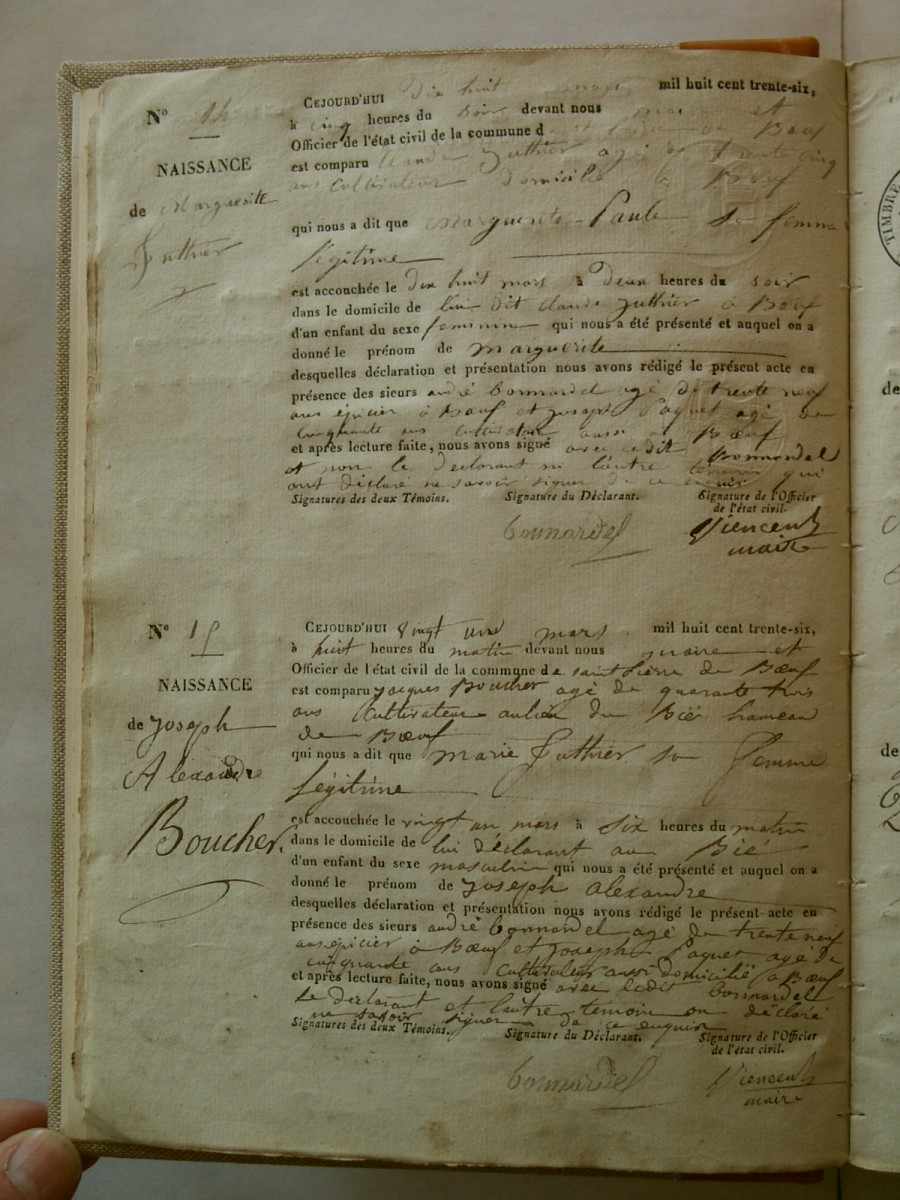 N° 14
NAISSANCE
de Marguerite
Juthier
CEJOURD'HUI Dix huit mars mil huit cent trente-six,
à cinq heures du soir devant nous maire et
Officier de l'état civil de la commune d de Bœuf
est comparu Claude Juthier agé de trente cinq
ans cultivateur domicilié à Bœuf
qui nous a dit que Marguerite Paule sa femme
légitime
est accouchée le dix huit mars à deux heures du soir
dans le domicile de lui dit claude juthier à Bœuf
d'un enfant du sexe feminin qui nous a été présenté et auquel on a
donné le prénom de marguerite
desquelles déclaration et présentation nous avons rédigé le présent acte en
présence des sieurs andré bonnardel agé de trente neuf
ans épicier à Bœuf et joseph Paquet agé de
cinquante ans cultivateur aussi à Bœuf
et après lecture faite, nous avons signé avec ledit Bonnardel
et non le declarant ni l'autre témoin qui
ont déclaré ne savoir signer de ce enquis
Signatures des deux Témoins. Signature du Déclarant. Signature de l'Officier
de l'état civil.
bonnardel Viencent
maire
N° 15
NAISSANCE
de Joseph
Alexandre
Boucher.
CEJOURD'HUI vingt un mars mil huit cent trente-six,
à huit heures du matin devant nous maire et
Officier de l'état civil de la commune de saint pierre de Bœuf
est comparu jacques Boucher agé de quarante trois
ans cultivateur au lieu du Bié hameau
de Bœuf
qui nous a dit que marie Juthier sa femme
légitime
est accouchée le vingt un mars à six heures du matin
dans le domicile de lui déclarant au Bié
d'un enfant du sexe masculin qui nous a été présenté et auquel on a
donné le prénom de joseph alexandre
desquelles déclaration et présentation nous avons rédigé le présent acte en
présence des sieurs andré bonnardel agé de trente neuf
ans épicier à Bœuf et joseph Paquet agé de
cinquante ans cultivateur aussi domicilié à Bœuf
et après lecture faite, nous avons signé avec ledit bonnardel
le declarant et l'autre témoin on déclaré
ne savoir signer de ce enquis
Signatures des deux Témoins. Signature du Déclarant. Signature de l'Officier
de l'état civil.
bonnardel Viencent
maire
TIMBRE
de
de